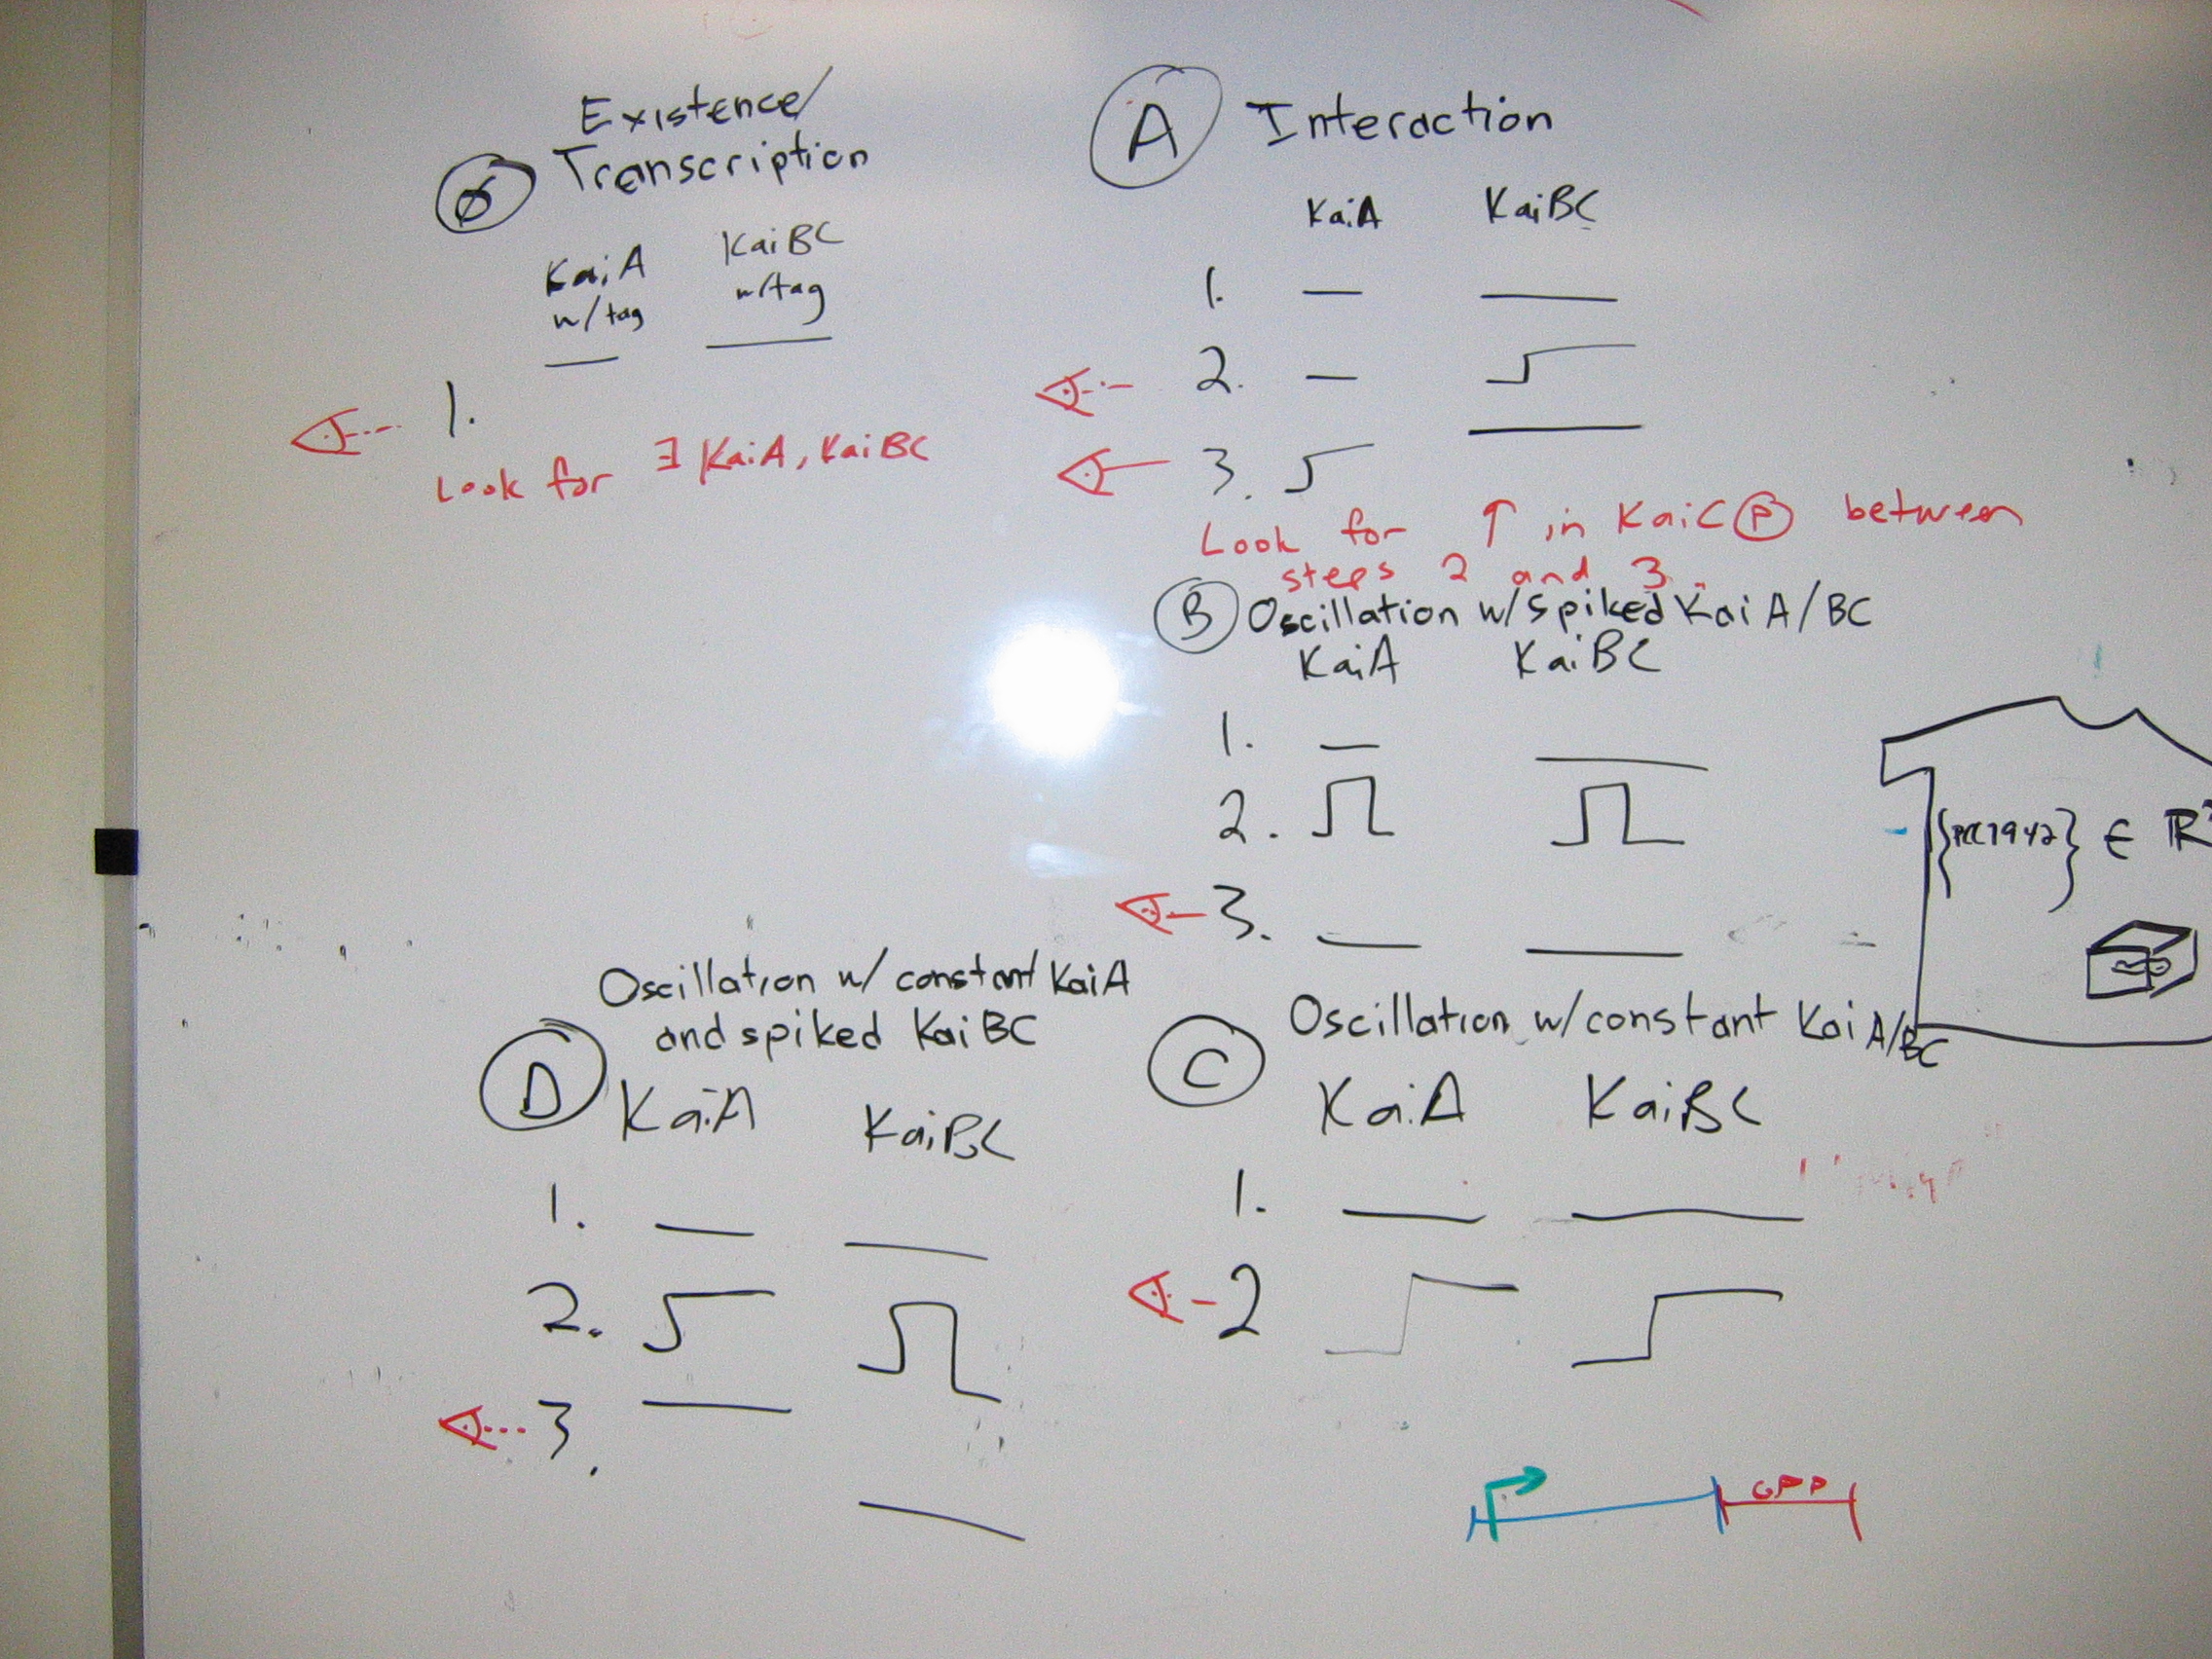 Existence/
Ø Transcription
KaiA KaiBC
w/tag w/tag
1.
Look for ∃ KaiA, KaiBC
A Interaction
KaiA KaiBC
1.
2.
3.
Look for ↑ in KaiC P between
steps 2 and 3.
B Oscillation w/spiked KaiA/BC
KaiA KaiBC
1.
2.
3.
{PCC7942} ∈ R
C Oscillation w/constant KaiA/BC
KaiA KaiBC
1.
2
D Oscillation w/ constant KaiA
and spiked KaiBC
KaiA KaiBC
1.
2.
3.